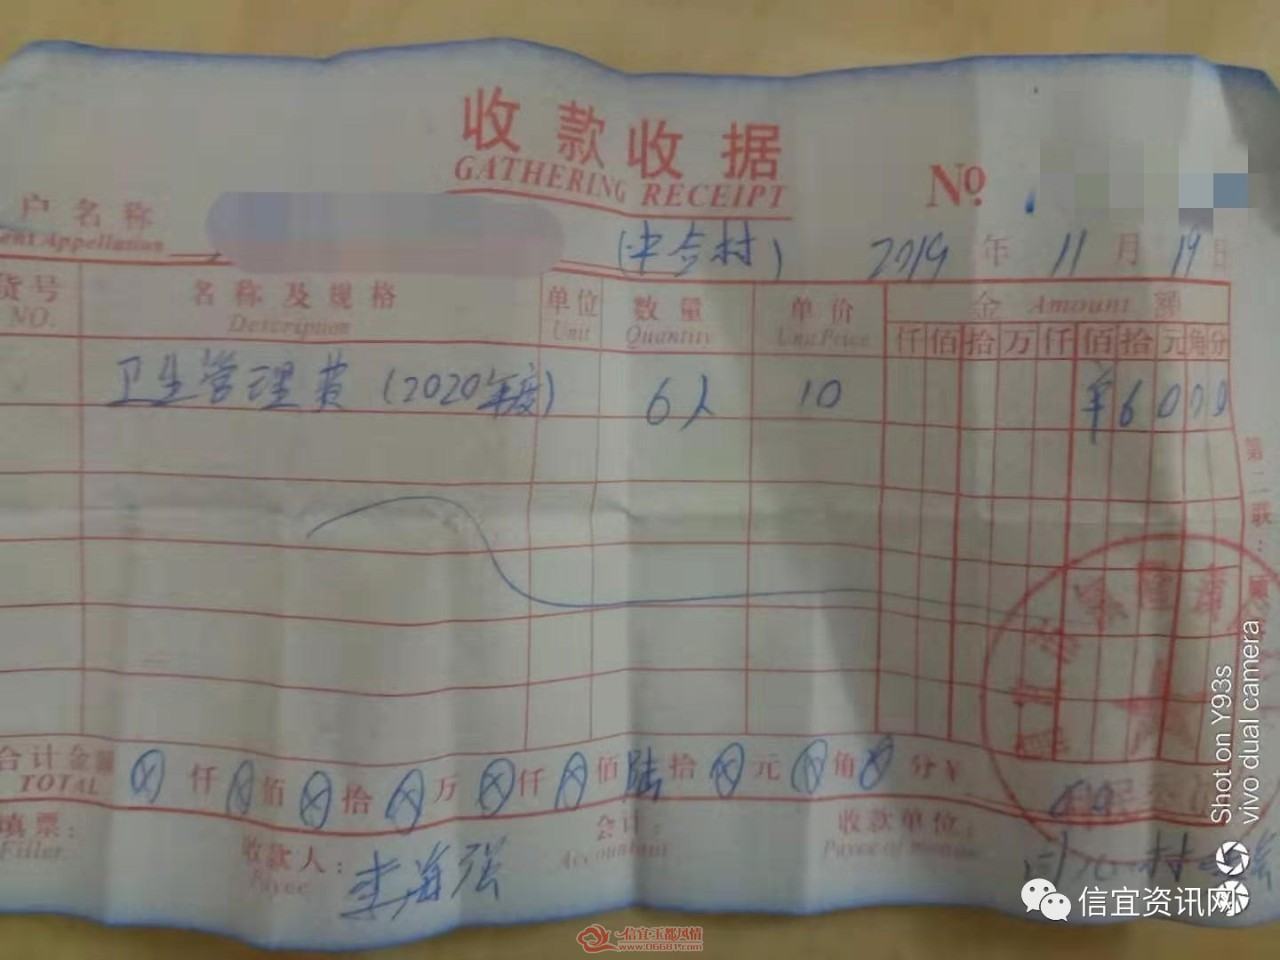 收款收据
GATHERING RECEIPT
№
户名称
ent Appellation
2019年11月19日
货号 名称及规格 单位 数量 单价 金 Amount 额
NO. Description Unit Quantity Unit Price
仟佰拾万仟佰拾元角分
卫生管理费(2020年度) 6人 10 ¥6000
第二联:
合计金额 ⊗仟⊗佰⊗拾⊗万⊗仟⊗佰陆拾⊗元⊗角⊗分¥
TOTAL
填票: 收款人:李海强 会计: 收款单位:
Filler Payee Accountant Payee of
Shot on Y93s
vivo dual camera
信宜资讯网
信宜玉都风情
www.06681.com